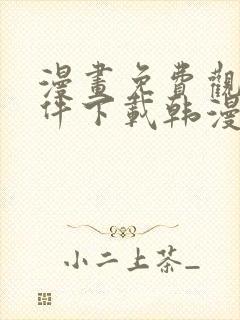 漫畫免費觀
件下載韩漫
小二上茶_